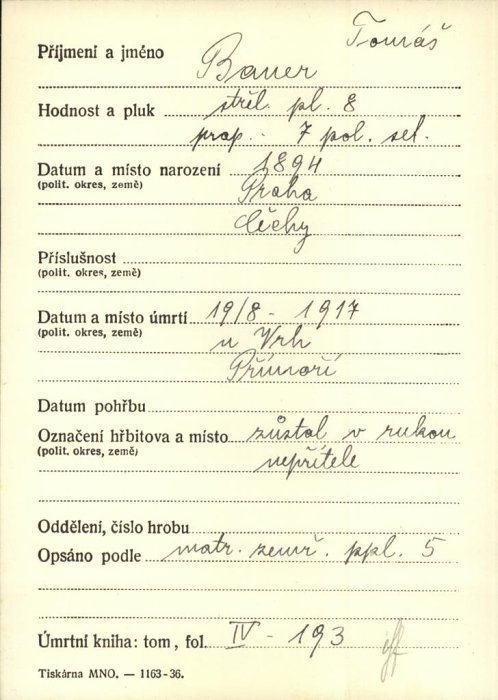 Tomáš
Příjmení a jméno Bauer
Hodnost a pluk střel. pl. 8
prap. 7 pol. sel.
Datum a místo narození 1894
(polit. okres, země) Praha
Čechy
Příslušnost
(polit. okres, země)
Datum a místo úmrtí 19/8 - 1917
(polit. okres, země) u Vrh
Přímoří
Datum pohřbu
Označení hřbitova a místo zůstal v rukou
(polit. okres, země) nepřítele
Oddělení, číslo hrobu
Opsáno podle matr. zemř. ppl. 5
Úmrtní kniha: tom, fol. IV - 193
Tiskárna MNO. — 1163-36.